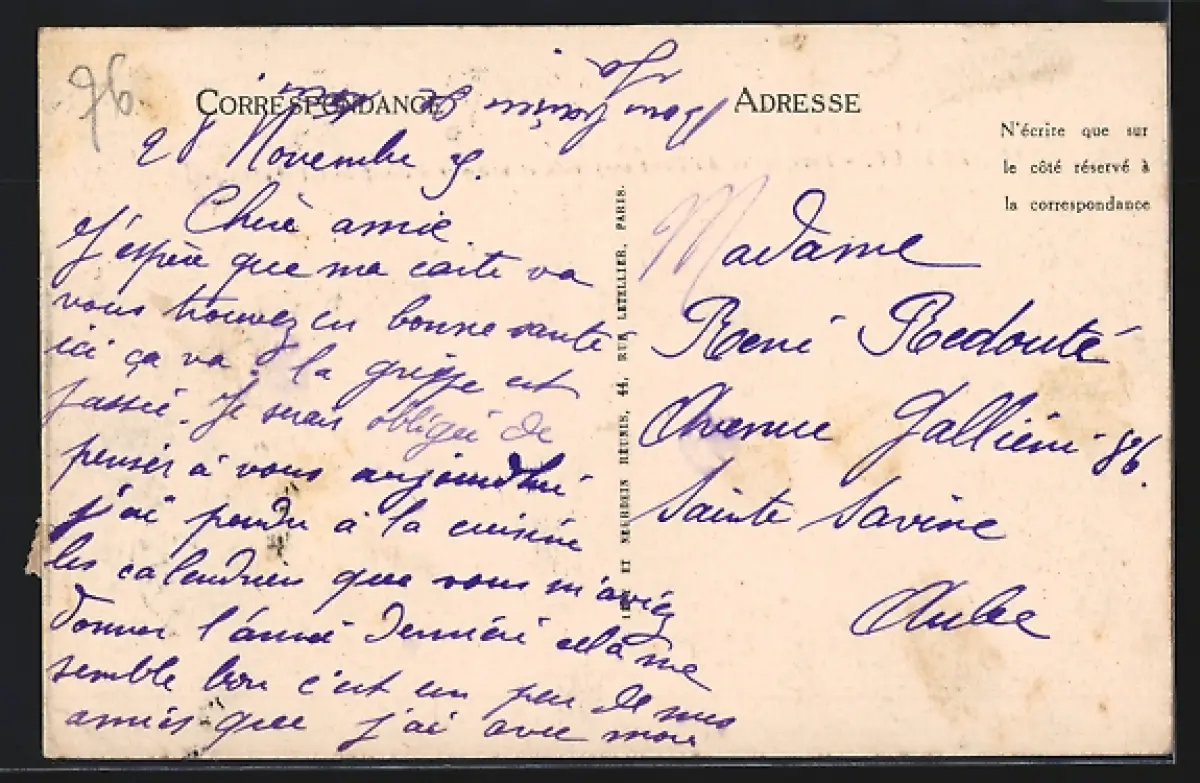 96
CORRESPONDANCE
28 Novembre
Chère amie
J'espère que ma carte va
vous trouvez en bonne santé
ici ça va. la grippe est
passée. Je serais obligée de
penser à vous aujourdhui
j'ai pendu à la cuisine
les calendrier que vous m'aviez
donner l'année dernière cela me
semble bon c'est un peu de mes
amies que j'ai avec moi
ET NEURDEIN RÉUNIS, 44, RUE LETELLIER, PARIS.
ADRESSE
N'écrire que sur
le côté réservé à
la correspondance
Madame
René Redouté
Avenue Galliéni 86.
Sainte Savine
Aube